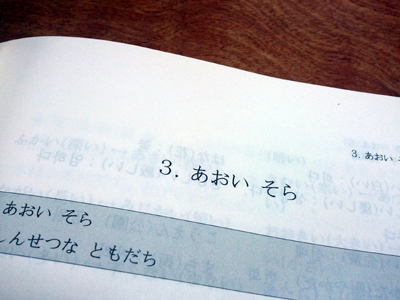 3. あおい そ
3. あおい そら
あおい そら
んせつな ともだち